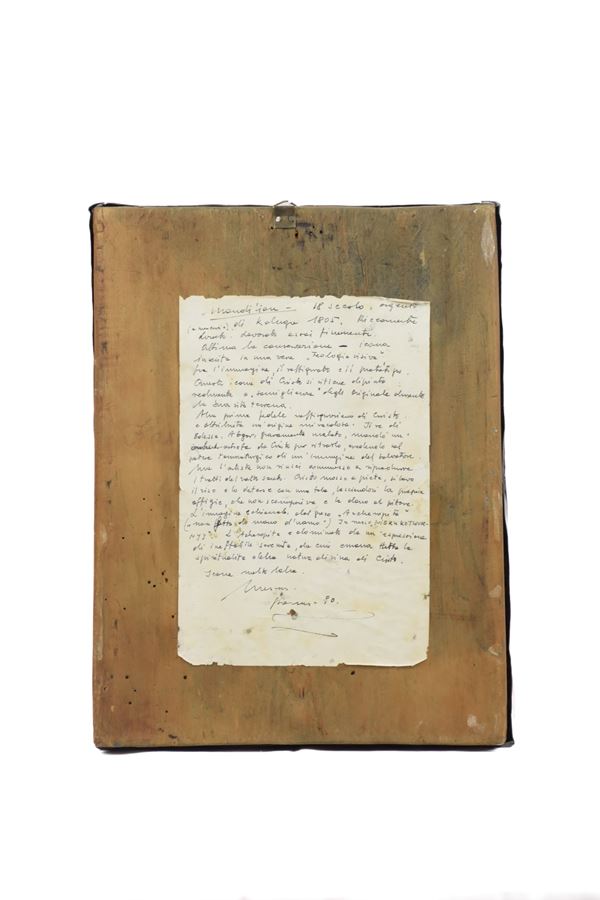 "Mandilion" – 18 secolo, argento
di Kaluga 1805. Riccamente
lavorato assai finemente.
Ottima la conservazione – Icona
inserita in una vera "Teologia visiva"
fra l'immagine, il raffigurato e il prototipo.
Questa icona di Cristo si ritiene dipinta
realmente a "somiglianza" degli originale durante
la sua vita terrena.
Alla prima fedele raffigurazione di Cristo
è attribuita un origine miracolosa. Il re di
Edessa. Abgar, gravamente malato, mandò un
artista da Cristo per ritrarlo, credendo nel
potere taumaturgico di un'immagine del Salvatore.
Ma l'artista non riuscì a riprodurre
i tratti del volto santo. Cristo mosso a pietà, si lavò
il viso e lo deterse con una tela, lasciandovi la propria
effigie, che non scompariva e la donò al pittore.
L'immagine è chiamata dal greco "Acheropita"
(= non fatto da mano d'uomo).
L'Acheropita è dominata da un'espressione
di ineffabile serenità, da cui emana tutta la
spiritualità della natura divina di Cristo.
Icona molto bella.